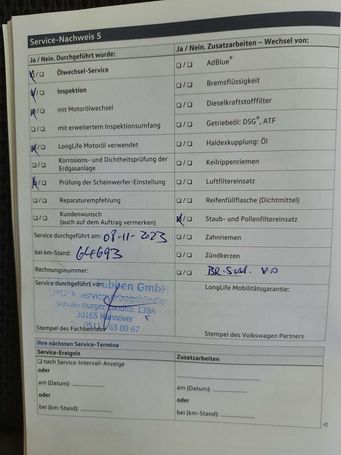 Service-Nachweis 5
Ja / Nein. Durchgeführt wurde:
Ölwechsel-Service
Inspektion
mit Motorölwechsel
mit erweitertem Inspektionsumfang
LongLife Motoröl verwendet
Korrosions- und Dichtheitsprüfung der
Erdgasanlage
Prüfung der Scheinwerfer-Einstellung
Reparaturempfehlung
Kundenwunsch
(auch auf dem Auftrag vermerken)
Service durchgeführt am: 08-11-2023
bei km-Stand: 64693
Rechnungsnummer:
Service durchgeführt von:
GmbH
Service
30165 Hannover
0511 63 00 67
Stempel des Fachbetriebs
Ja / Nein. Zusatzarbeiten – Wechsel von:
AdBlue®
Bremsflüssigkeit
Dieselkraftstofffilter
Getriebeöl: DSG®, ATF
Haldexkupplung: Öl
Keilrippenriemen
Luftfiltereinsatz
Reifenfüllflasche (Dichtmittel)
Staub- und Pollenfiltereinsatz
Zahnriemen
Zündkerzen
LongLife Mobilitätsgarantie:
Stempel des Volkswagen Partners
Ihre nächsten Service-Termine
Service-Ereignis
nach Service-Intervall-Anzeige
oder
am (Datum):
oder
bei (km-Stand):
Zusatzarbeiten
am (Datum):
oder
bei (km-Stand):